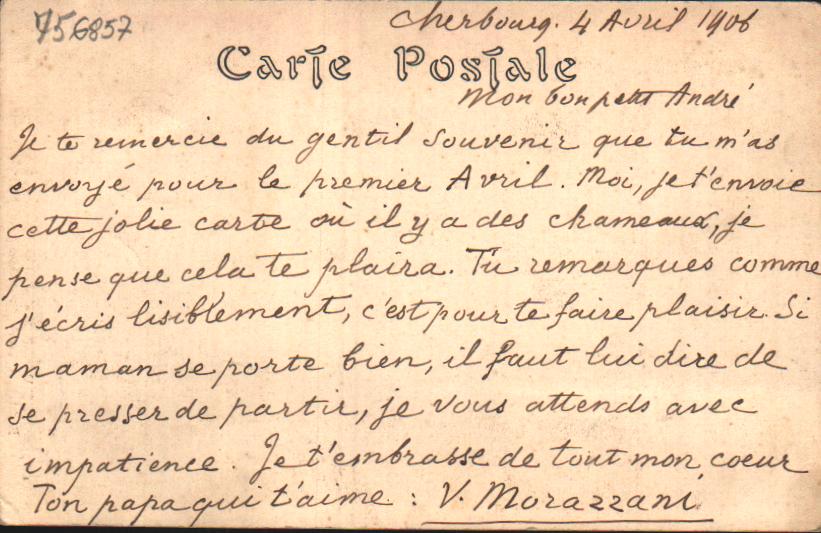 756857
Cherbourg. 4 Avril 1906
Carte Postale
Mon bon petit André
Je te remercie du gentil souvenir que tu m'as
envoyé pour le premier Avril. Moi, je t'envoie
cette jolie carte où il y a des chameaux, je
pense que cela te plaira. Tu remarques comme
j'écris lisiblement, c'est pour te faire plaisir. Si
maman se porte bien, il faut lui dire de
se presser de partir, je vous attends avec
impatience. Je t'embrasse de tout mon coeur
Ton papa qui t'aime : V. Morazzani